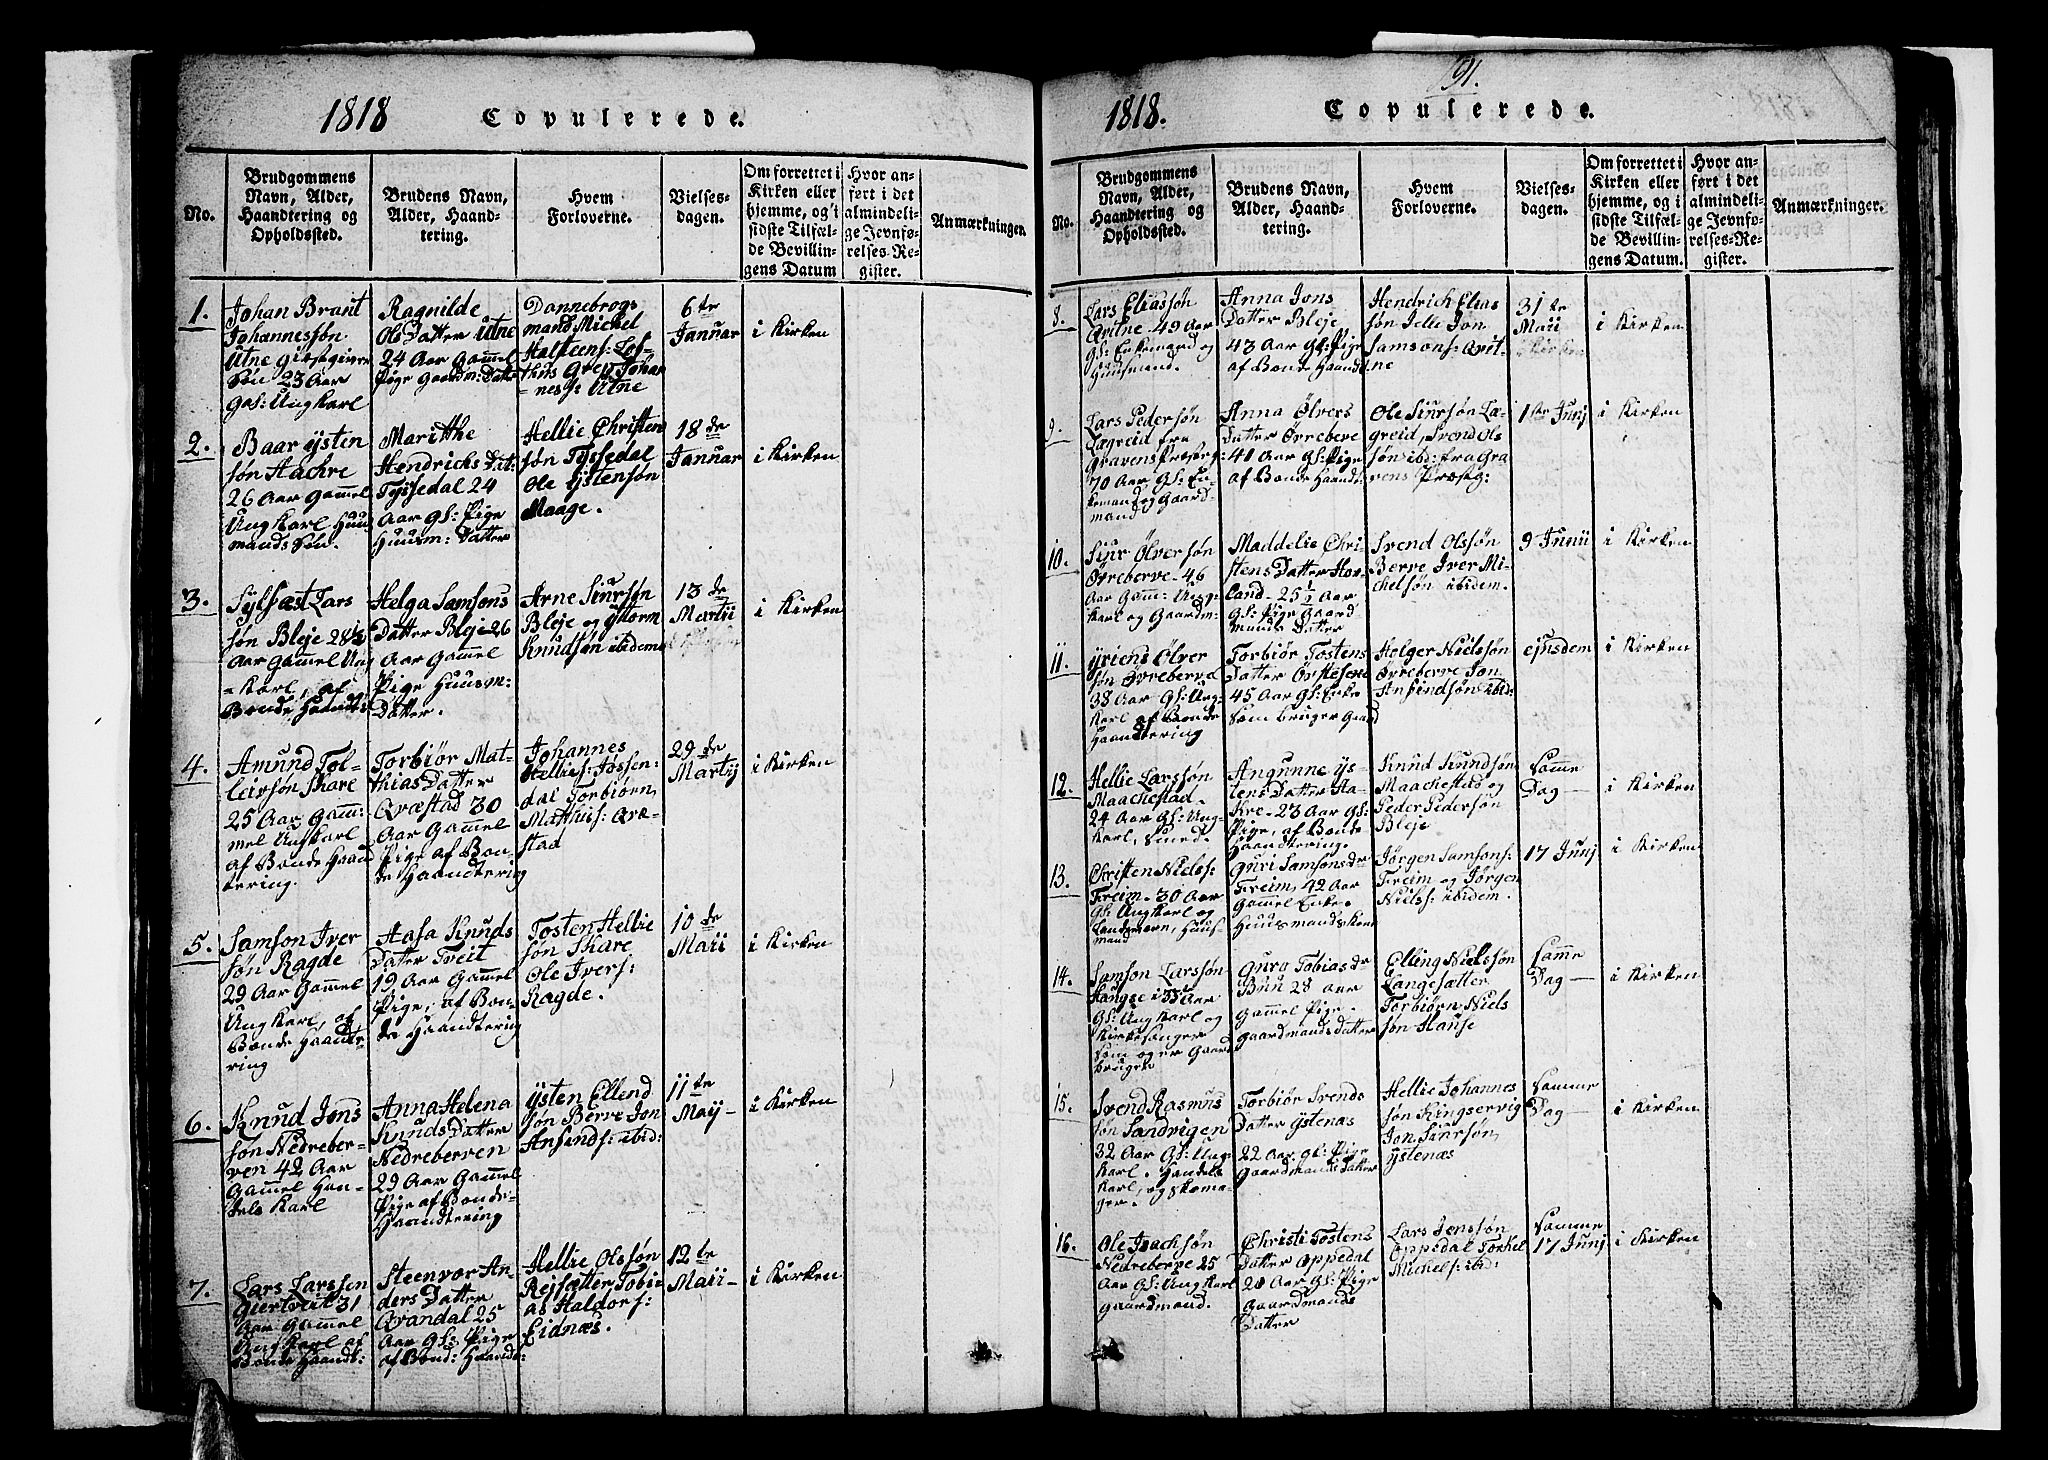 1818 Copulerede.
No.
Brudgommens
Navn, Alder,
Haandtering og
Opholdssted.
Brudens Navn,
Alder, Haand-
tering.
Hvem
Forloverne.
Vielses-
dagen.
Om forrettet i
Kirken eller
hjemme, og i
sidste Tilfæl-
de Bevillin-
gens Datum
Hvor an-
ført i det
almindeli-
ge Jevnfø-
relses-Re-
gister.
Anmærkninger.
1.
Johan Brant
Johannessøn
Utne giestgiver
Søn 23 Aar
Gol: Ungkarl
Ragnilde
Ols Datter Utne
24 Aar Gam̄el
Pige Gaardm: Datt
Dannebrogs
mand Mickel
Halsteens: Lof-
thus Grey Johan
nes: Utne
6te
Januar
i Kirken
2.
Baar Ÿsten
søn Aachre
26 Aar Gam̄el
Ungkarl Huus
mands Søn.
Maritthe
Hendricks Dat:
Tyssedal 24
Aar Gl: Pige
Huusm: Datter
Hellie Christen
søn Tyssedal
Ole Ÿstensøn
Maage.
18 de
Januar
i Kirken
3.
Sylfæst Lars
søn Bleje 28½
Aar Gam̄el Ung
-Karl, af
Bonde Haandt:
Helga Samsons
Datter Bleje 26
Aar Gam̄el
Pige Huusm:
Datter.
Arne Siursøn
Bleje og Gutorm
Knudsøn ibidem
13 de
Martii
i Kirken
4.
Amund Tol-
leivsøn Skare
25 Aar Gam̄:
mel Ungkarl
af Bonde Haand
tering.
Torbiør Mat-
thias Datter
Qvæstad 30
Aar Gam̄el
Pige af Bon-
de Haandtering
Johannes
Hellies: Jøssen:
dal Torbiørn
Matthis: Qvæ-
stad
29 de
Martij
i Kirken
5.
Samson Iver
søn Ragde
29 Aar Gam̄el
Ungkarl, af
Bonde Haandte-
ring
Aasa Knuds
Datter Tveit
19 Aar Gam̄el
Pige, af Bon-
de Haandtering
Tosten Hellie
søn Skare
Ole Ivers:
Ragde.
10 de
Maii
i Kirken
6.
Knud Jons
søn Nedreber-
ven 42 Aar
Gam̄el Han-
dels Karl
Anna Helena
Knuds Datter
Nedreberven
29 Aar Gam̄el
Pige af Bonde-
Haandtering
Ÿsten Ellend
søn Berve Jon
Ansends: ibid:
11te
Maij-
i Kirken
7.
Lars Larssen
Giertveit 31
Aar Gam̄el
Ungkarl af
Bonde Haandt:
Steenvor An-
ders Datter
Qvandal 25
Aar Gl: Pige
af Bond: Haandt:
Hellie Olssøn
Rejsætter Tobi-
as Haldors:
Eidnæs.
12te
Maii-
i Kirken
91.
1818. Copulerede.
No.
Brudgommens
Navn, Alder,
Haandtering og
Opholdssted.
Brudens Navn,
Alder, Haand-
tering.
Hvem
Forloverne.
Vielses-
dagen.
Om forrettet i
Kirken eller
hjemme, og i
sidste Tilfæl-
de Bevillin-
gens Datum.
Hvor an-
ført i det
almindeli-
ge Jevnfø-
relses-Re-
gister.
Anmærkninger.
8.
Lars Eliassøn
Qvitne 49 Aar
Gl: Enkemand og
Huusmand.
Anna Jons
Datter Bleje
43 Aar Gl: Pige
af Bonde Haandt
Hendrich Elias
søn Jelle Jon
Samsons: Qvit-
ne
31te
Maii
i Kirken
9.
Lars Pedersøn
Lægreid fra
Gravens Præseg:
70 Aar Gl: En-
kemand og Gaard-
mand
Anna Ølvers
Datter Øvreberve
41 Aar Gl: Pige
af Bonde Haandt:
Ole Siursøn Læ-
greid, Svend Ols
søn ibid: fra Gra
vens Præsteg:
1ste Junj
i Kirken
10.
Siur Ølversøn
Øvreberve 46
Aar Gam̄: Ung
Karl og Gaardm:
Maddelie Chri-
stens Datter Hov
land - 25 ½ Aar
Gl: Pige Gaard
mands Datter
Svend Olssøn
Berve Iver Mi-
chelsøn ibidem.
9 Junii
i Kirken
11.
Ÿriens Ølver
søn Øvreberve
38 Aar Gl: Ung-
Karl af Bonde
Haandtering
Torbiør Tostens
Datter Øvstesene
45 Aar Gl: Enke
som bruger Gaard
Holger Nielssøn
Øvreberve Jon
Ansindsøn ibid:
ejusdem
i Kirken
12.
Hellie Larssøn
Maachestad
24 Aar Gl: Ung-
Karl, Smed.
Angunne Ÿs-
tens Datter Aa-
kre - 23 Aar Gl:
Pige, af Bonde
Haandtering.
Knud Knudsøn
Maachestad og
Peder Pedersøn
Bleje
Sam̄e
Dag -
i Kirken
13.
Christen Niels:
Freim - 30 Aar
Gl: Ungkarl og
Landeværn, Huus
mand
Guri Samsons dr
Freim, 42 Aar
Gam̄el Enke.
Huusmandskone
Jørgen Samsons:
Freim og Jørgen
Niels: ibidem.
17 Junj
i Kirken
14.
Samson Larssøn
Hangse i 35 Aar
Gl: Ungkarl og
Kirkesanger
som og er Gaard
bruger
Guro Tobias dr
Buu 28 Aar
Gam̄el Pige.
Gaardmands Datter
Elling Nielssøn
Langesætter
Torbiørn Niels
søn Hause
Sam̄e
Dag -
i Kirken
15.
Svend Rasmus
søn Sandvigen
32 Aar Gl: Ung-
Karl. Handels
Karl, og Skoma-
ger.
Torbiør Svends
Datter Ÿstenæs
22 Aar Gl: Pige
Gaardmands Datter
Hellie Johannes
søn Kingservig
Jon Siursøn,
Ÿstenæs
Samme
Dag -
i Kirken
16.
Ole Isachsøn
Nedreberve 25
Aar Gl: Ungkarl
Gaardmand.
Christi Tostens
Datter Oppedal
20 Aar Gl: Pige
Gaardmands
Datter
Lars Jenssøn
Oppedal Torkel
Michels: ibid:
Samme
17 Junj
i Kirken